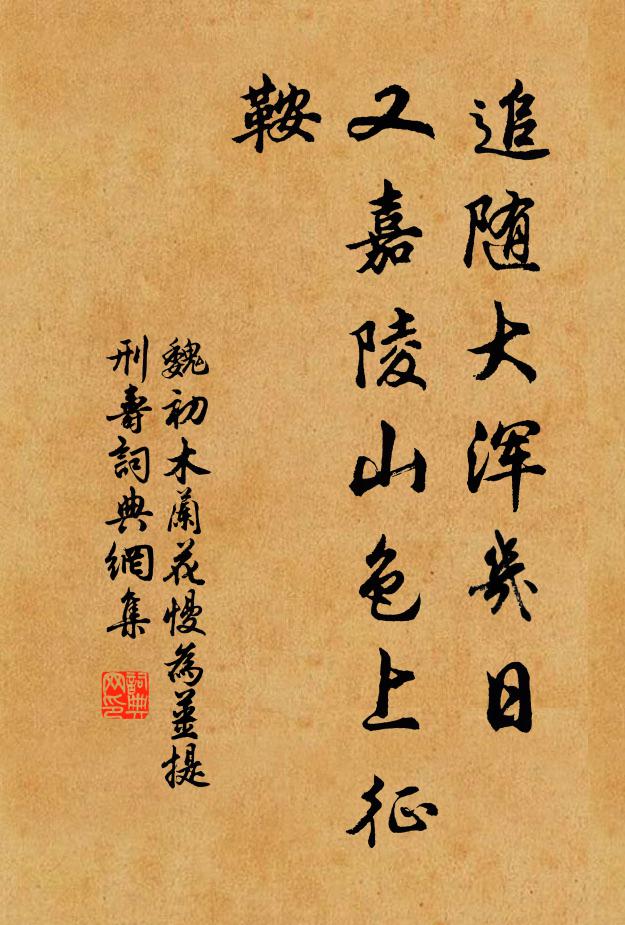 追随大浑幾日
又嘉陵山色上征
鞍
魏初木蘭花慢為姜提
刑壽詞典網集
詞典
网印